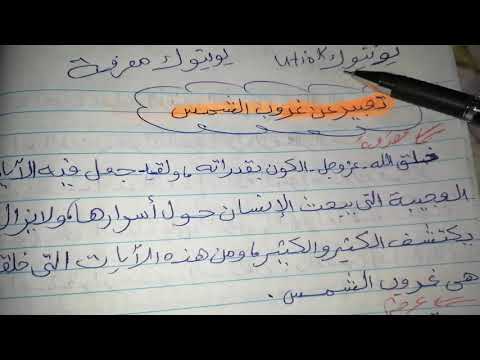 utiok يوتيوك معرفة
تعبير عن غروب الشمس
مقدمة
خلق الله - عزوجل - الكون بقدراته، ولقد جعل فيه الآيا
العجيبة التي يبحث الإنسان حول أسوارها، ولايزال
يكتشف الكثير والكثير، ومن هذه الآيات التي خلقه
هي غروب الشمس.
عرض